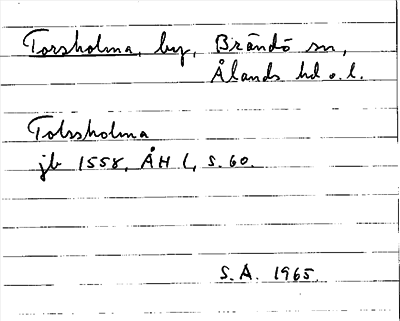 Torsholma, by, Brändö sn,
Ålands hd o. l.
Tolssholma
jb 1558, ÅH l, s. 60.
S.A. 1965.